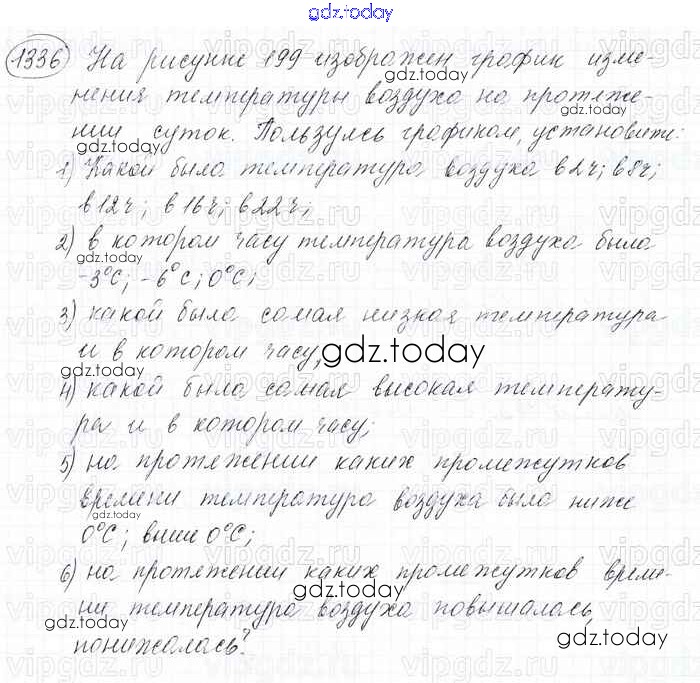 gdz.today
1336 На рисунке 199 изображен график изме-
нения температуры воздуха на протяже-
нии суток. Пользуясь графиком, установите:
1) Какой была температура воздуха в 2 ч; в 8 ч;
в 12 ч; в 16 ч; в 22 ч;
2) в котором часу температура воздуха была
-3°С; -6°С; 0°С;
3) какой была самая низкая температура
и в котором часу;
4) какой была самая высокая температу-
ра и в котором часу;
5) на протяжении каких промежутков
времени температура воздуха была ниже
0°С; выше 0°С;
6) на протяжении каких промежутков време-
ни температура воздуха повышалась,
понижалась?